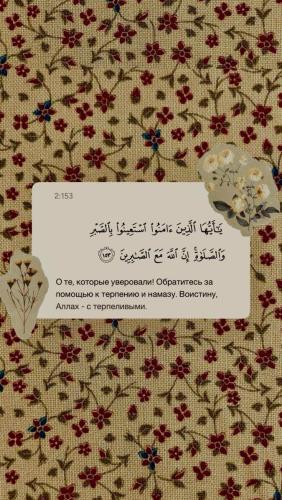 2:153
يَـٰٓأَيُّهَا ٱلَّذِينَ ءَامَنُوا۟ ٱسْتَعِينُوا۟ بِٱلصَّبْرِ
وَٱلصَّلَوٰةِ ۚ إِنَّ ٱللَّهَ مَعَ ٱلصَّـٰبِرِينَ ١٥٣
О те, которые уверовали! Обратитесь за
помощью к терпению и намазу. Воистину,
Аллах - с терпеливыми.